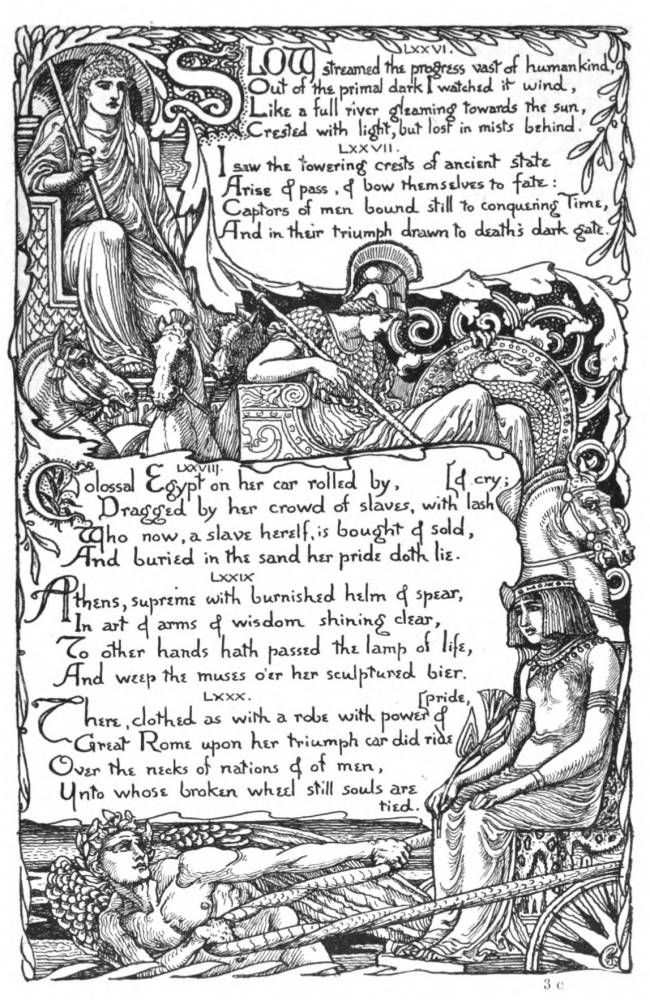 LXXVI.
SLOW streamed the progress vast of humankind,
Out of the primal dark I watched it wind,
Like a full river gleaming towards the sun,
Crested with light, but lost in mists behind.
LXXVII.
I saw the towering crests of ancient state
Arise & pass, & bow themselves to fate:
Captors of men bound still to conquering Time,
And in their triumph drawn to death's dark gate.
LXXVIIJ.
Colossal Egypt on her car rolled by, [& cry;
Dragged by her crowd of slaves, with lash
Who now, a slave herself, is bought & sold,
And buried in the sand her pride doth lie.
LXXIX
Athens, supreme with burnished helm & spear,
In art & arms & wisdom shining clear,
To other hands hath passed the lamp of life,
And weep the muses o'er her sculptured bier.
LXXX.
[pride,
There, clothed as with a robe with power &
Great Rome upon her triumph car did ride
Over the necks of nations & of men,
Unto whose broken wheel still souls are
tied.
3 C